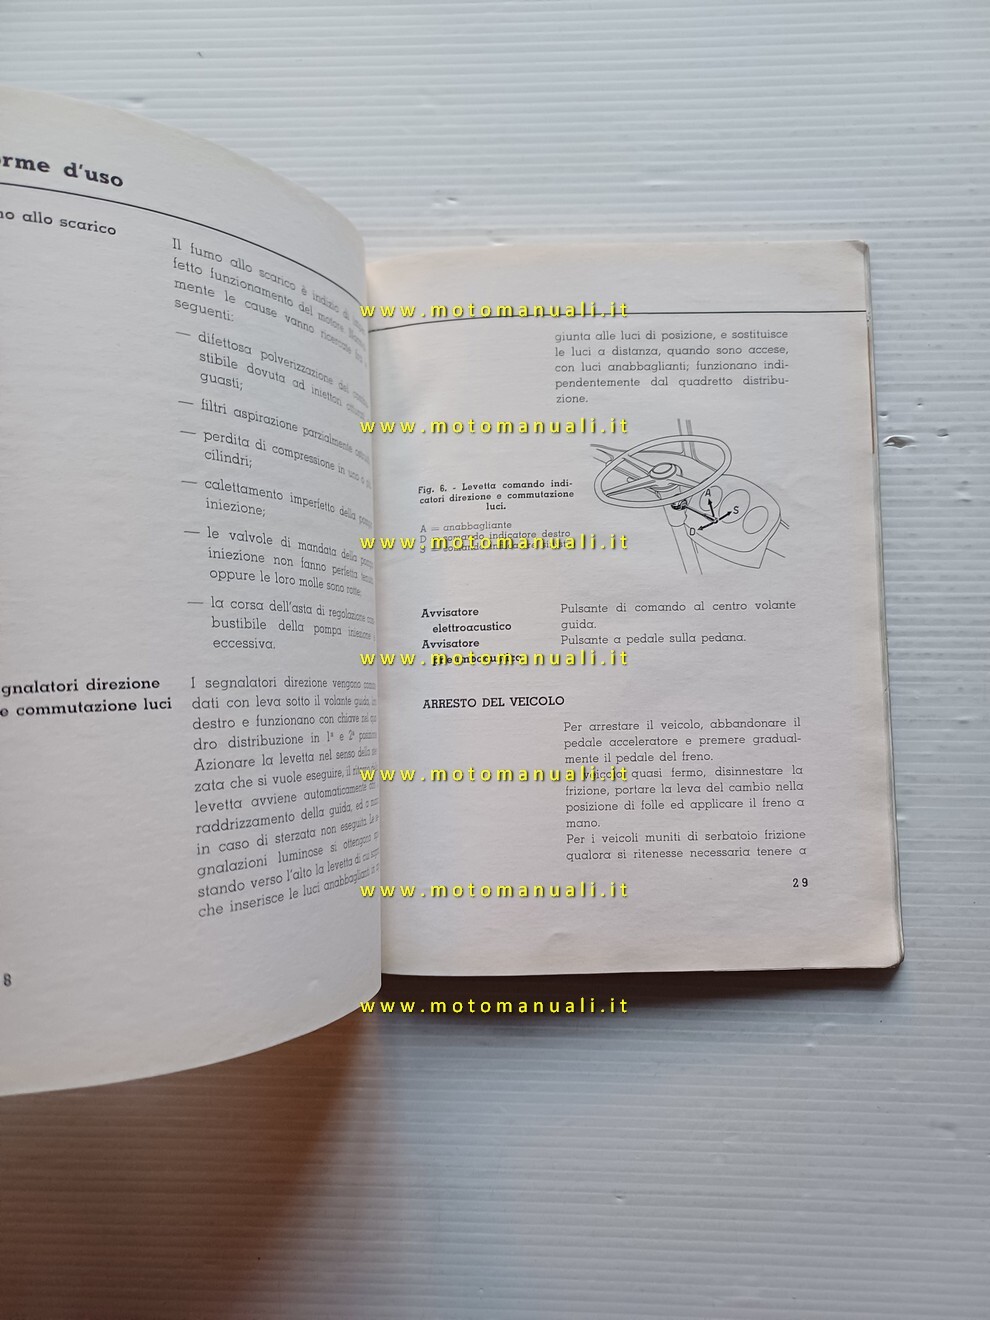 orme d'uso
no allo scarico
Il fumo allo scarico è indizio di
fetto funzionamento del motore.
mente le cause vanno ricercate
seguenti:
— difettosa polverizzazione del
stibile dovuta ad iniettori
guasti;
— filtri aspirazione parzialmente
— perdita di compressione in uno o più
cilindri;
— calettamento imperfetto della pompa
iniezione;
— le valvole di mandata della pompa
iniezione non fanno perfetta tenuta
oppure le loro molle sono rotte;
— la corsa dell'asta di regolazione
bustibile della pompa iniezione è
eccessiva.
gnalatori direzione
e commutazione luci
I segnalatori direzione vengono
dati con leva sotto il volante guida,
destro e funzionano con chiave nel
dro distribuzione in 1ª e 2ª posizione
Azionare la levetta nel senso della
zata che si vuole eseguire, il ritorno
levetta avviene automaticamente
raddrizzamento della guida, ed a mano
in caso di sterzata non eseguita. Le
gnalazioni luminose si ottengono
stando verso l'alto la levetta di cui sopra
che inserisce le luci anabbaglianti in
8
giunta alle luci di posizione, e sostituisce
le luci a distanza, quando sono accese,
con luci anabbaglianti; funzionano indi-
pendentemente dal quadretto distribu-
zione.
Fig. 6. - Levetta comando indi-
catori direzione e commutazione
luci.
A = anabbagliante
D = comando indicatore destro
S
A
S
D
Avvisatore
elettroacustico
Pulsante di comando al centro volante
guida.
Avvisatore
pneumoacustico
Pulsante a pedale sulla pedana.
ARRESTO DEL VEICOLO
Per arrestare il veicolo, abbandonare il
pedale acceleratore e premere gradual-
mente il pedale del freno.
veicolo quasi fermo, disinnestare la
frizione, portare la leva del cambio nella
posizione di folle ed applicare il freno a
mano.
Per i veicoli muniti di serbatoio frizione
qualora si ritenesse necessaria tenere a
29
www.motomanuali.it
www.motomanuali.it
www.motomanuali.it
www.motomanuali.it
www.motomanuali.it
www.motomanuali.it
www.motomanuali.it